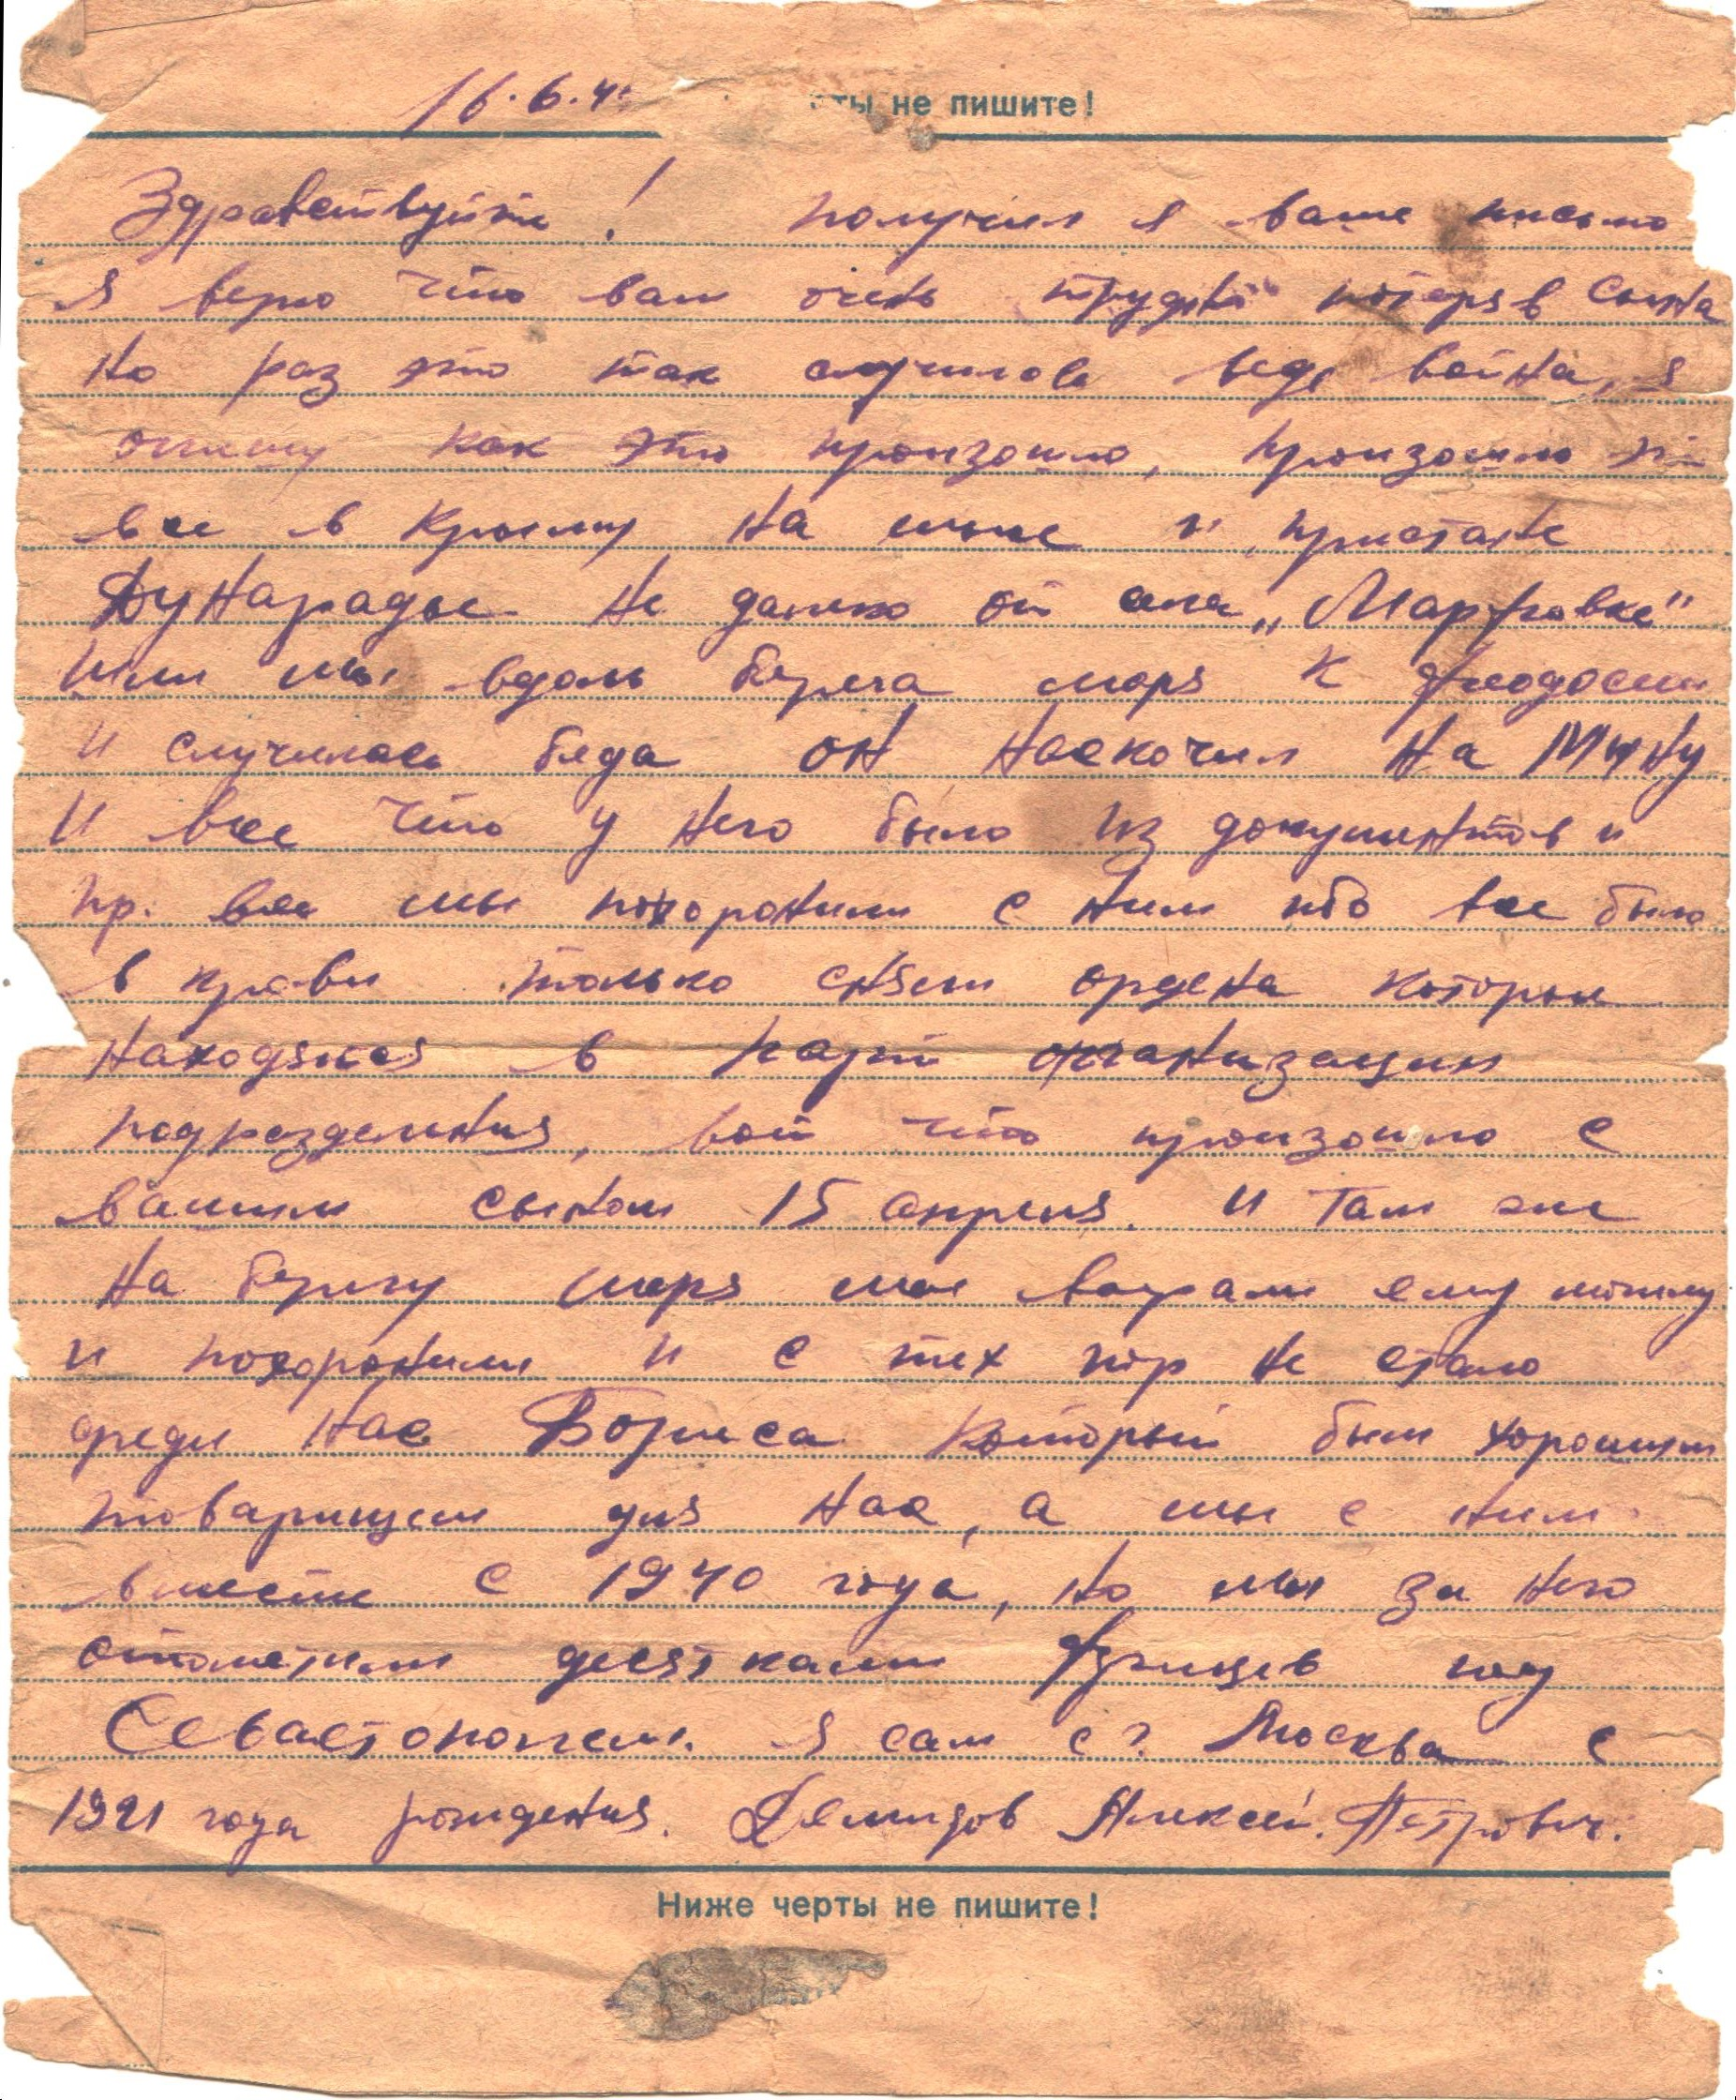 16.6.4
ты не пишите!
Здравствуйте! Получил я ваше письмо
я верю что вам очень трудно потеряв сына
но раз это так случилось ведь война, я
опишу как это произошло, произошло
все в Крыму на мысе и пристане
Дунарады не далеко от села „Марфовке"
шли мы вдоль берега моря к Феодосии
и случилась беда он наскочил на мину
и все что у него было из документов и
пр. все мы похоронили с ним ибо все было
в крови только сняли ордена которые
находятся в парт организации
подразделения, вот что произошло с
вашим сыном 15 апреля. и там же
на берегу моря мы ему могилу
и похоронили и с тех пор не стало
среди нас Бориса который был хорошим
товарищем для нас, а мы с ним
вместе с 1940 года, но мы за него
отомстили десятками фрицев под
Севастополем. я сам с г. Москва с
1921 года рождения. Демидов Алексей Петрович.
Ниже черты не пишите!